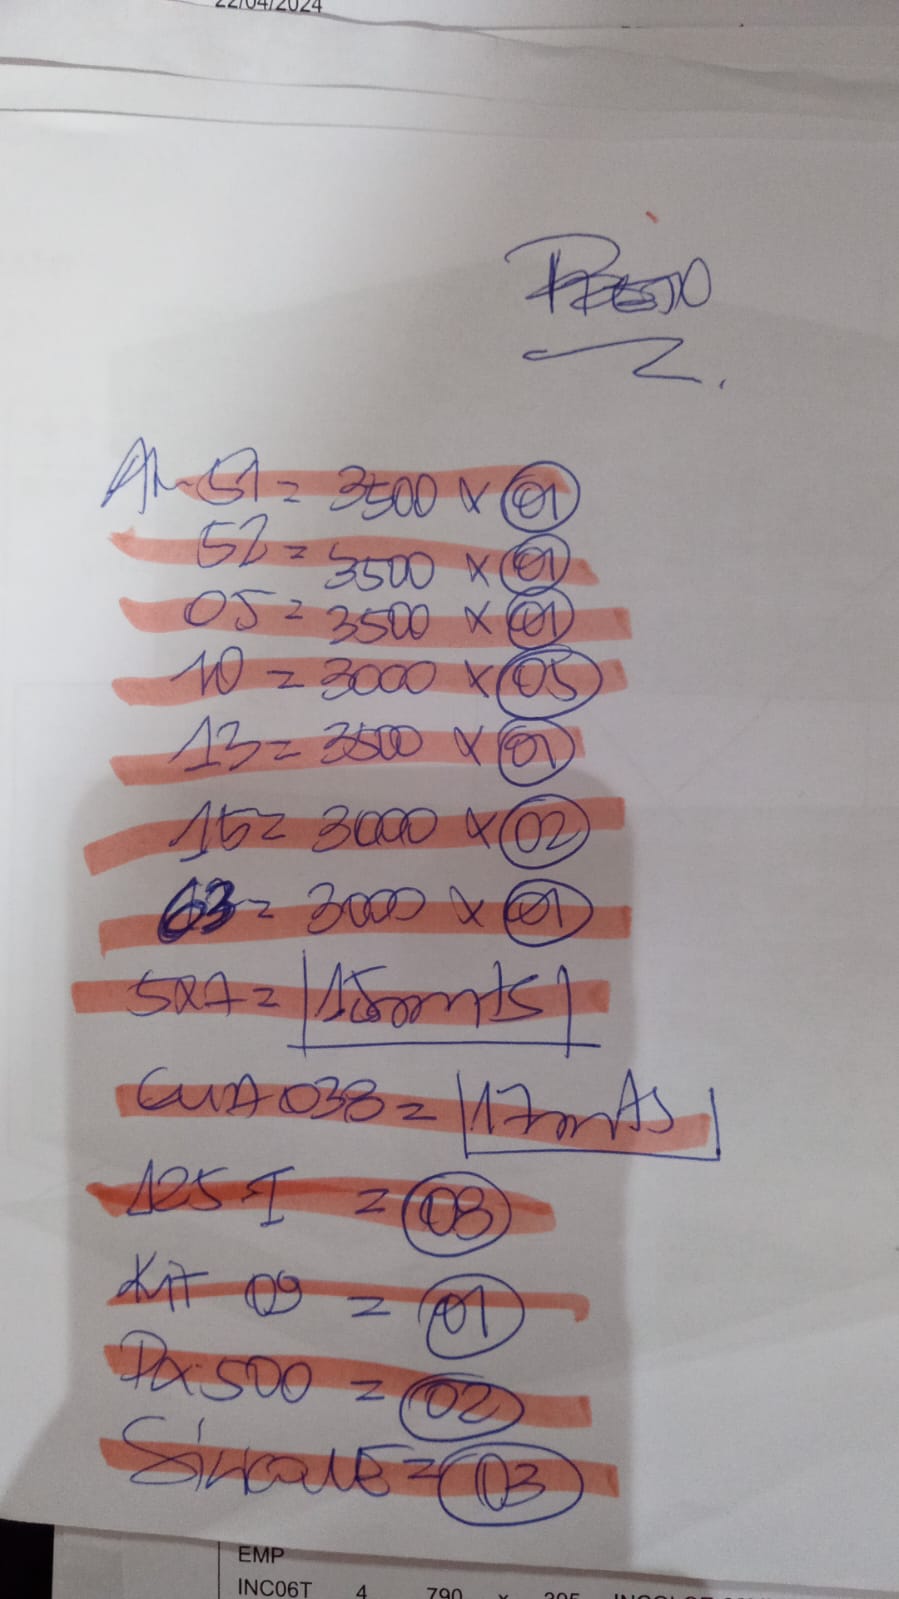 22/04/2024
PRETO
AL-51 = 3500 x 01
52 = 3500 x 01
05 = 3500 x 01
10 = 3000 x 05
13 = 3500 x 01
15 = 3000 x 02
63 = 3000 x 01
5x7 = 15mts
GUA 038 = 17mts
125 I = 08
Kit 09 = 01
PX-500 = 02
Silicone = 03
EMP
INC06T 4 790 x 395